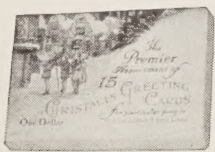 The
Premier
Assortment of
15
CHRISTMAS GREETING
CARDS
One Dollar